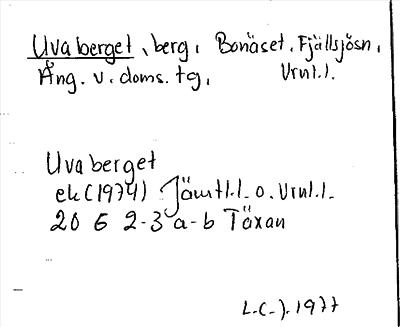 Uvaberget, berg, Bonäset, Fjällsjösn,
Ång. v. doms. tg, Vrnl.l.
Uvaberget
ek (1974) Jämtl.l. o. Vrnl.l.
20 G 2-3 a-b Täxan
L.C-J. 1977